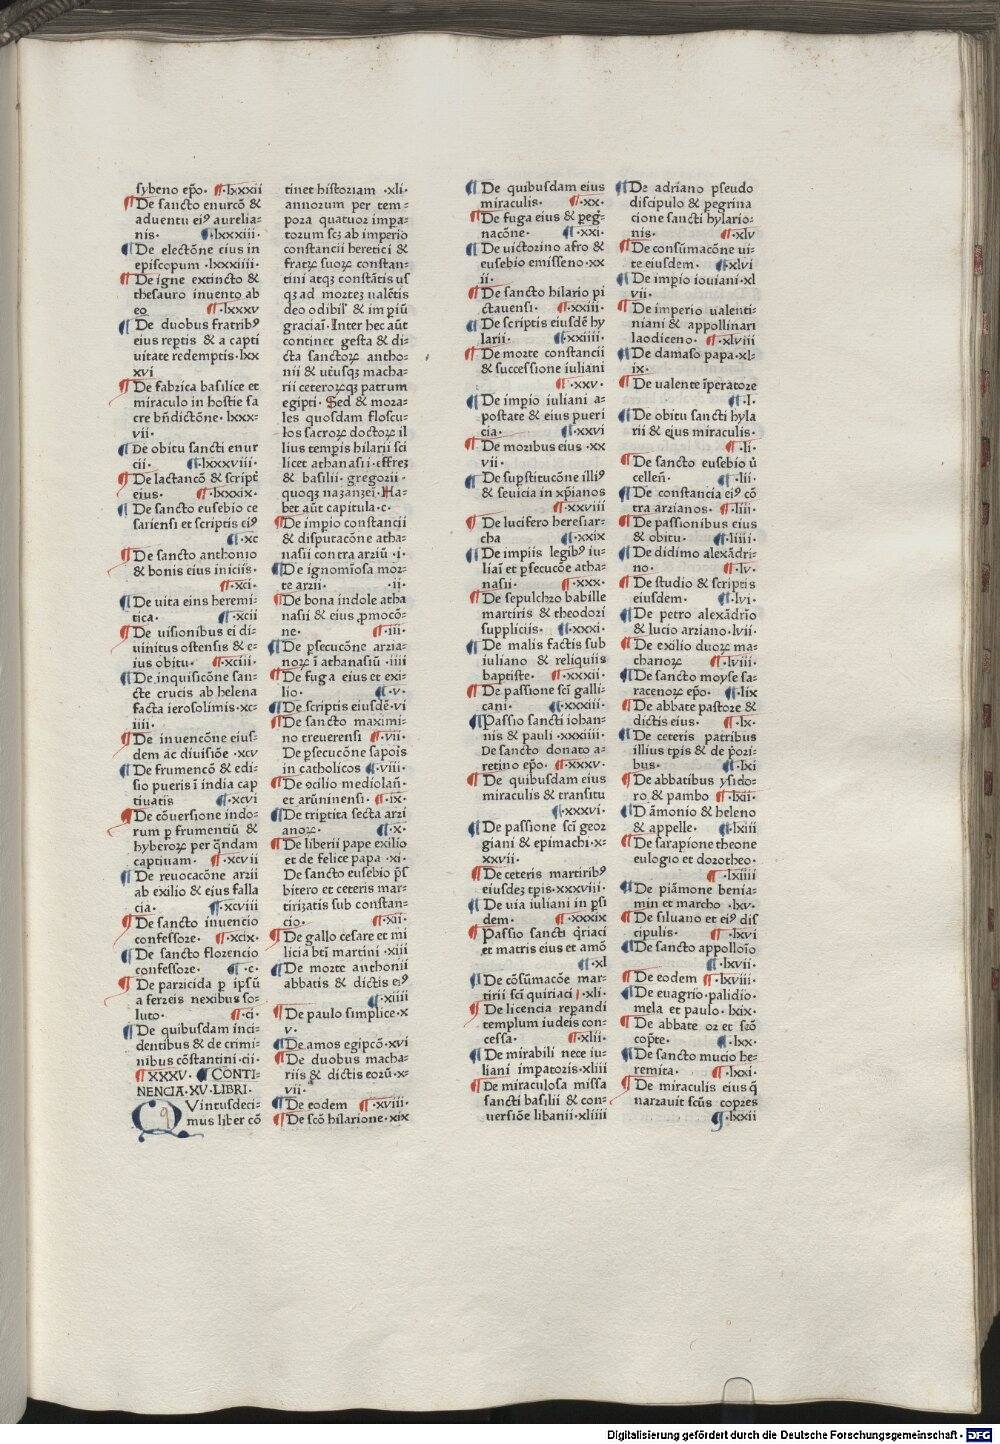 sybeno ep̃o· ¶·lxxxii
¶De sancto enurcō &
aduentu eiꝰ aurelia-
nis· ¶·lxxxiii·
¶De electōne eius in
episcopum ·lxxxiiii·
¶De igne extincto &
thesauro inuento ab
eo ¶·lxxxv
¶De duobus fratribꝰ
eius rep̄tis & a capti
uitate redemptis·lxx
xvi
¶De fabrica basilice et
miraculo in hostie sa
cre bñdictōne·lxxx-
vii·
¶De obitu sancti enur
cii· ¶·lxxxviii·
¶De lactancō & script̄
eius· ¶·lxxxix·
¶De sancto eusebio ce
sariensi et scriptis eiꝰ
¶·xc
¶De sancto anthonio
& bonis eius iniciis·
¶·xci·
¶De uita eins heremi-
tica· ¶·xcii
¶De uisionibus ei di-
uinitus ostensis & e-
ius obitu· ¶·xciii·
¶De inquisicōne san-
cte crucis ab helena
facta ierosolimis·xc-
iiii·
¶De inuencōne eius-
dem ac diuisiōe·xcv
¶De frumencō & edi-
sio pueris ī india cap
tiuatis ¶·xcvi
¶De cōuersione indo-
rum p̱ frumentiū &
hyberoꝝ per q̄ndam
captiuam· ¶·xcvii
¶De reuocacōne arzii
ab exilio & eius falla
cia· ¶·xcviii
¶De sancto inuencio
confessore· ¶·xcix·
¶De sancto florencio
confessore· ¶·c·
¶De parzicida p̱ ipsū
a ferzeis nexibus so-
luto· ¶·ci·
¶De quibusdam inci-
dentibus & de crimi-
nibus cōstantini·cii·
¶XXXV· ¶CONTI-
NENCIA·XV·LIBRI·
QVintusdeci-
mus liber cō
tinet historiam ·xli·
annorum per tem-
pora quatuor impa-
torum scȝ ab imperio
constancii heretici &
fratꝝ suoꝝ constan-
tini atqȝ constātis us
qȝ ad morteȝ ualētis
deo odibil̄ & im piū
graciañ· Inter hec aūt
continet gesta & di-
cta sanctoꝝ antho-
nii & utiusqȝ macha-
rii ceteroꝝqȝ patrum
egipti· Sed & moza-
les quosdam floscu-
los sacroꝝ doctoꝝ il
lius temp̱is hilarii sci
licet athanasii·effreȝ
& basilii·gregorii-
quoqȝ nazanzeī·Ha-
bet aūt capitula·c·
¶De imp̱io constancii
& disputacōne atha-
nasii contra arziū·i·
¶De ignomīosa moz-
te arzii· ·ii·
¶De bona indole atha
nasii & eius ꝓmocō-
ne· ¶·iii·
¶De p̱secucōne arzia-
noꝝ ī athanasiū·iiii
¶De fuga eius et exi-
lio· ¶·v·
¶De scriptis eiusdē·vi
¶De sancto maximi-
no treuerensi ¶·vii·
De p̱secucōne sapoꝛis
in catholicos ¶·viii·
¶De ocilio mediolañ·
et arūninensi· ¶·ix·
¶De trip̱tita secta arzi
anoꝝ· ¶·x·
¶De liberii pape exilio
et de felice papa ·xi·
De sancto eusebio p̄s
bitero et ceteris mar-
tirizatis sub constan-
cio· ¶·xii·
¶De gallo cesare et mi
licia bt̄i martini ·xiii
¶De morte anthonii
abbatis & dictis eiꝰ
¶·xiiii
¶De paulo simplice·x
v·
¶De amos egipcō·xvi
¶De duobus macha-
riis & dictis eoꝛū·x-
vii·
¶De eodem ¶·xviii·
¶De scō hilarione·xix
¶De quibusdam eius
miraculis· ¶·xx·
¶De fuga eius & peg̃-
nacōne· ¶·xxi·
¶De uictorino afro &
eusebio emisseno·xx
ii·
¶De sancto hilario pi
ctauensi· ¶·xxiii·
¶De scriptis eiusdē hy
larii· ¶·xxiiii·
¶De morte constancii
& successione iuliani
¶·xxv·
¶De imp̱io iuliani a-
postate & eius pueri
cia· ¶·xxvi
¶De moribus eius ·xx
vii·
¶De sup̱stitucōne illiꝰ
& seuicia in xp̄ianos
¶·xxviii
¶De lucifero heresiar-
cha ¶·xxix
¶De impiis legibꝰ iu-
liañ et p̱secucōe atha-
nasii· ¶·xxx·
¶De sepulchzo babille
martiris & theodori
suppliciis· ¶·xxxi·
¶De malis factis sub
iuliano & reliquiis
baptiste· ¶·xxxii·
¶De passione sci galli-
cani· ¶·xxxiii·
¶Passio sancti iohan-
nis & pauli ·xxxiiii·
De sancto donato a-
retino ep̃o· ¶·xxxv·
¶De quibusdam eius
miraculis & transitu
¶·xxxvi·
¶De passione sci geoꝛ
giani & epimachi·x-
xxvii·
¶De ceteris martiribꝰ
eiusdeȝ tp̱is·xxxviii·
¶De uia iuliani in p̱si
dem· ¶·xxxix
¶Passio sancti q̄riaci
et matris eius et amō
¶·xl
¶De cōsumacōe mar-
tirii sci quiriaci ·xli·
¶De licencia rep̱andi
templum iudeis con-
cessa· ¶·xlii·
¶De mirabili nece iu-
liani imp̱atoris·xliii
¶De miraculosa missa
sancti basilii & con-
uersiōe libanii·xliiii
¶De adriano pseudo
discipulo & p̱egrina
cione sancti hylario-
nis· ¶·xlv
¶De consūmacōne ui-
te eiusdem· ¶·xlvi
¶De impio iouiani·xl
vii·
¶De imperio ualenti-
niani & appollinari
laodiceno· ¶·xlviii
¶De damaso papa·xl-
ix·
¶De ualente īperatore
¶·l·
¶De obitu sancti hyla
rii & eius miraculis·
¶·li·
¶De sancto eusebio ū
celleñ· ¶·lii·
¶De constancia eiꝰ cō
tra arzianos· ¶·liii·
¶De passionibus eius
& obitu· ¶·liiii·
¶De didimo alexādri-
no· ¶·lv·
¶De studio & scriptis
eiusdem· ¶·lvi·
¶De petro alexādrīo
& lucio arziano·lvii·
¶De exilio duoꝝ ma-
charioꝝ ¶·lviii·
¶De sancto moyse sa-
racenoꝝ ep̃o· ¶·lix
¶De abbate pastore &
dictis eius· ¶·lx·
¶De ceteris patribus
illius tp̱is & de p̱ori-
bus· ¶·lxi
¶De abbatibus ysido-
ro & pambo ¶·lxii·
¶D āmonio & heleno
& appelle· ¶·lxiii
¶De sarapione theone
eulogio et dozotheo·
¶·lxiiii
¶De piāmone benia-
min et marcho ·lxv·
¶De siluano et eiꝰ dis
cipulis· ¶·lxvi
¶De sancto appolloīo
¶·lxvii·
¶De eodem ¶·lxviii·
¶De euagrio·palidio·
mela et paulo· lxix·
¶De abbate oꝛ et scō
cop̱te· ¶·lxx·
¶De sancto mucio he-
remita· ¶·lxxi·
¶De miraculis eius q̄
narzauit scūs copzes
¶·lxxii
Digitalisierung gefördert durch die Deutsche Forschungsgemeinschaft · DFG